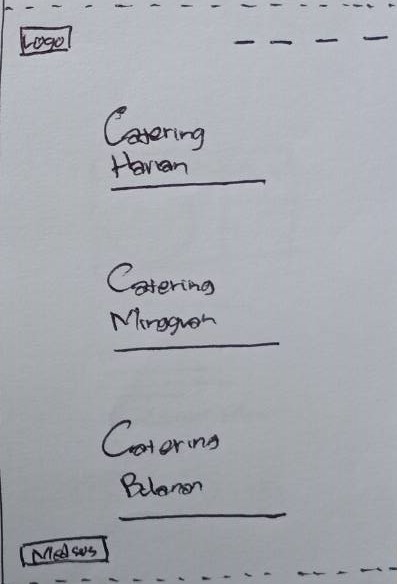 Logo
Catering
Harian
Catering
Mingguan
Catering
Bulanan
Medsos